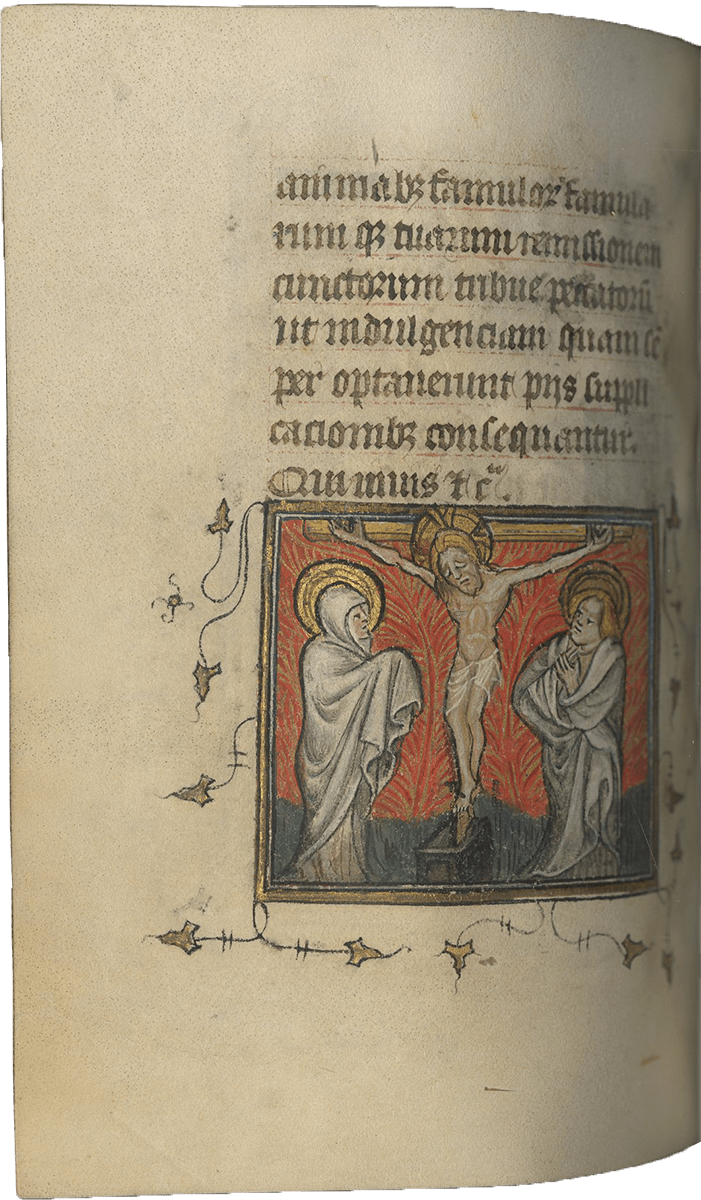 animabꝫ famuloꝝ famula
rum qꝫ tuarum remissionem
cunctorum tribue peccatorū
ut indulgenciam quam sē
per optauerunt pijs suppli
cacionibꝫ consequantur.
Qui uiuis ⁊ cͣ.